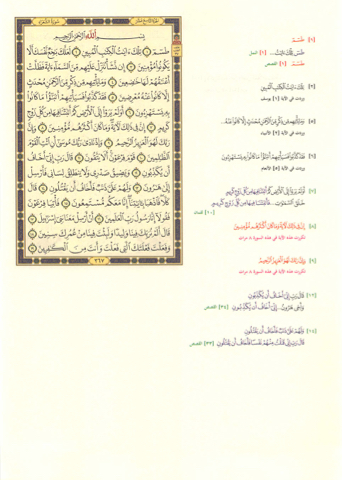 سورة الشعراء
الجزء التاسع عشر
بِسْمِ اللَّهِ الرَّحْمَٰنِ الرَّحِيمِ
طسٓمٓ ۝ تِلْكَ ءَايَٰتُ ٱلْكِتَٰبِ ٱلْمُبِينِ ۝ لَعَلَّكَ بَٰخِعٌ نَّفْسَكَ أَلَّا
يَكُونُوا۟ مُؤْمِنِينَ ۝ إِن نَّشَأْ نُنَزِّلْ عَلَيْهِم مِّنَ ٱلسَّمَآءِ ءَايَةً فَظَلَّتْ
أَعْنَٰقُهُمْ لَهَا خَٰضِعِينَ ۝ وَمَا يَأْتِيهِم مِّن ذِكْرٍ مِّنَ ٱلرَّحْمَٰنِ مُحْدَثٍ
إِلَّا كَانُوا۟ عَنْهُ مُعْرِضِينَ ۝ فَقَدْ كَذَّبُوا۟ فَسَيَأْتِيهِمْ أَنۢبَٰٓؤُا۟ مَا كَانُوا۟
بِهِۦ يَسْتَهْزِءُونَ ۝ أَوَلَمْ يَرَوْا۟ إِلَى ٱلْأَرْضِ كَمْ أَنۢبَتْنَا فِيهَا مِن كُلِّ زَوْجٍ
كَرِيمٍ ۝ إِنَّ فِى ذَٰلِكَ لَءَايَةً وَمَا كَانَ أَكْثَرُهُم مُّؤْمِنِينَ ۝ وَإِنَّ
رَبَّكَ لَهُوَ ٱلْعَزِيزُ ٱلرَّحِيمُ ۝ وَإِذْ نَادَىٰ رَبُّكَ مُوسَىٰٓ أَنِ ٱئْتِ ٱلْقَوْمَ
ٱلظَّٰلِمِينَ ۝ قَوْمَ فِرْعَوْنَ أَلَا يَتَّقُونَ ۝ قَالَ رَبِّ إِنِّىٓ أَخَافُ
أَن يُكَذِّبُونِ ۝ وَيَضِيقُ صَدْرِى وَلَا يَنطَلِقُ لِسَانِى فَأَرْسِلْ
إِلَىٰ هَٰرُونَ ۝ وَلَهُمْ عَلَىَّ ذَنۢبٌ فَأَخَافُ أَن يَقْتُلُونِ ۝ قَالَ
كَلَّا فَٱذْهَبَا بِـَٔايَٰتِنَآ إِنَّا مَعَكُم مُّسْتَمِعُونَ ۝ فَأْتِيَا فِرْعَوْنَ
فَقُولَآ إِنَّا رَسُولُ رَبِّ ٱلْعَٰلَمِينَ ۝ أَنْ أَرْسِلْ مَعَنَا بَنِىٓ إِسْرَٰٓءِيلَ ۝
قَالَ أَلَمْ نُرَبِّكَ فِينَا وَلِيدًا وَلَبِثْتَ فِينَا مِنْ عُمُرِكَ سِنِينَ ۝
وَفَعَلْتَ فَعْلَتَكَ ٱلَّتِى فَعَلْتَ وَأَنتَ مِنَ ٱلْكَٰفِرِينَ ۝
٣٦٧
[١] طسٓمٓ
طسٓ تِلْكَ ءَايَٰتُ... [١] النمل
طسٓمٓ [١] القصص
[٢] تِلْكَ ءَايَٰتُ ٱلْكِتَٰبِ ٱلْمُبِينِ
وردت في الآية [١] يوسف
[٥] وَمَا يَأْتِيهِم مِّن ذِكْرٍ مِّنَ ٱلرَّحْمَٰنِ مُحْدَثٍ إِلَّا كَانُوا۟ عَنْهُ...
وردت في الآية [٢] الأنبياء
[٦] فَقَدْ كَذَّبُوا۟ فَسَيَأْتِيهِمْ أَنۢبَٰٓؤُا۟ مَا كَانُوا۟ بِهِۦ يَسْتَهْزِءُونَ
وردت في الآية [٥] الأنعام
[٧] أَوَلَمْ يَرَوْا۟ إِلَى ٱلْأَرْضِ كَمْ أَنۢبَتْنَا فِيهَا مِن كُلِّ زَوْجٍ كَرِيمٍ
خَلَقَ ٱلسَّمَٰوَٰتِ... فَأَنۢبَتْنَا فِيهَا مِن كُلِّ زَوْجٍ كَرِيمٍ
[١٠] لقمان
[٨] إِنَّ فِى ذَٰلِكَ لَءَايَةً وَمَا كَانَ أَكْثَرُهُم مُّؤْمِنِينَ
تكررت هذه الآية في هذه السورة ٨ مرات
[٩] وَإِنَّ رَبَّكَ لَهُوَ ٱلْعَزِيزُ ٱلرَّحِيمُ
تكررت هذه الآية في هذه السورة ٨ مرات
[١٢] قَالَ رَبِّ إِنِّىٓ أَخَافُ أَن يُكَذِّبُونِ
وَأَخِى هَٰرُونُ... إِنِّىٓ أَخَافُ أَن يُكَذِّبُونِ [٣٤] القصص
[١٤] وَلَهُمْ عَلَىَّ ذَنۢبٌ فَأَخَافُ أَن يَقْتُلُونِ
قَالَ رَبِّ إِنِّى قَتَلْتُ مِنْهُمْ نَفْسًا فَأَخَافُ أَن يَقْتُلُونِ [٣٣] القصص